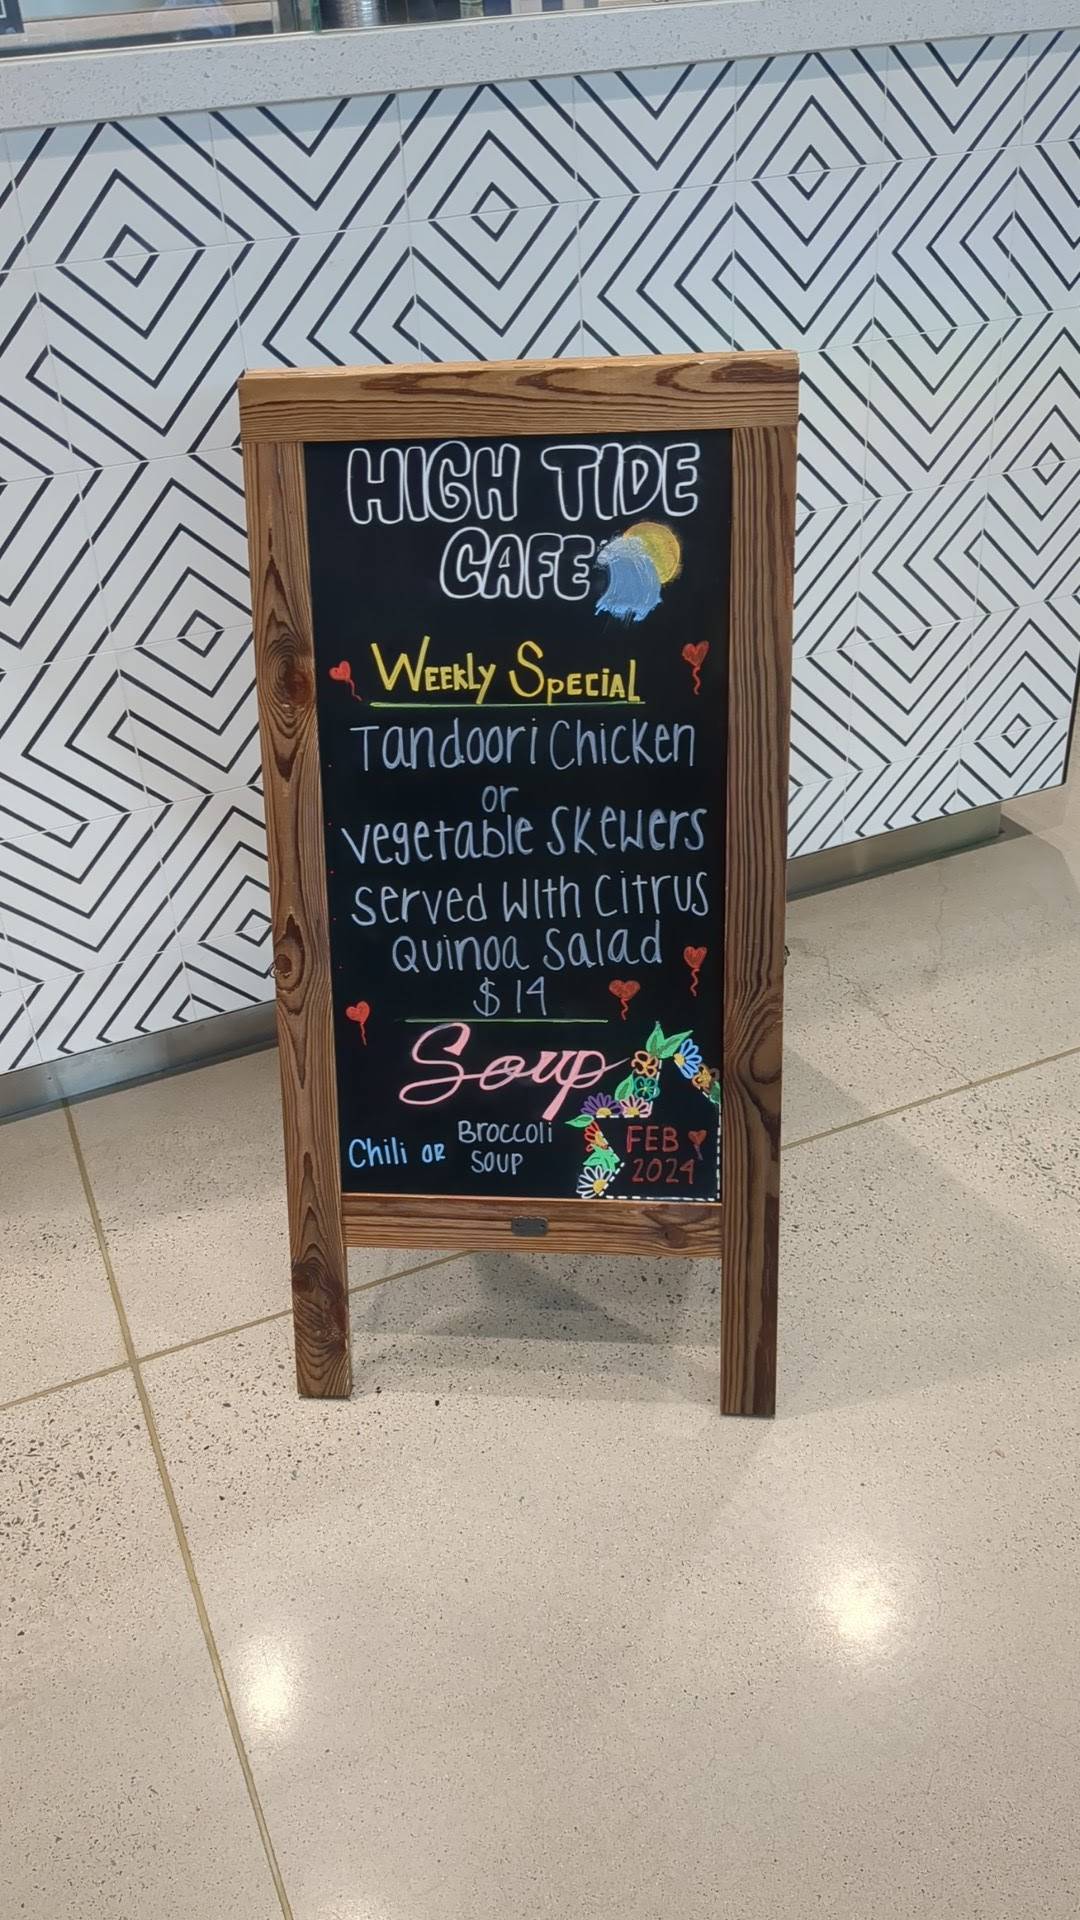 HIGH TIDE
CAFE
WEEKLY SPECIAL
Tandoori Chicken
or
Vegetable Skewers
Served With Citrus
Quinoa Salad
$14
Soup
Chili OR Broccoli
SOUP
FEB
2024